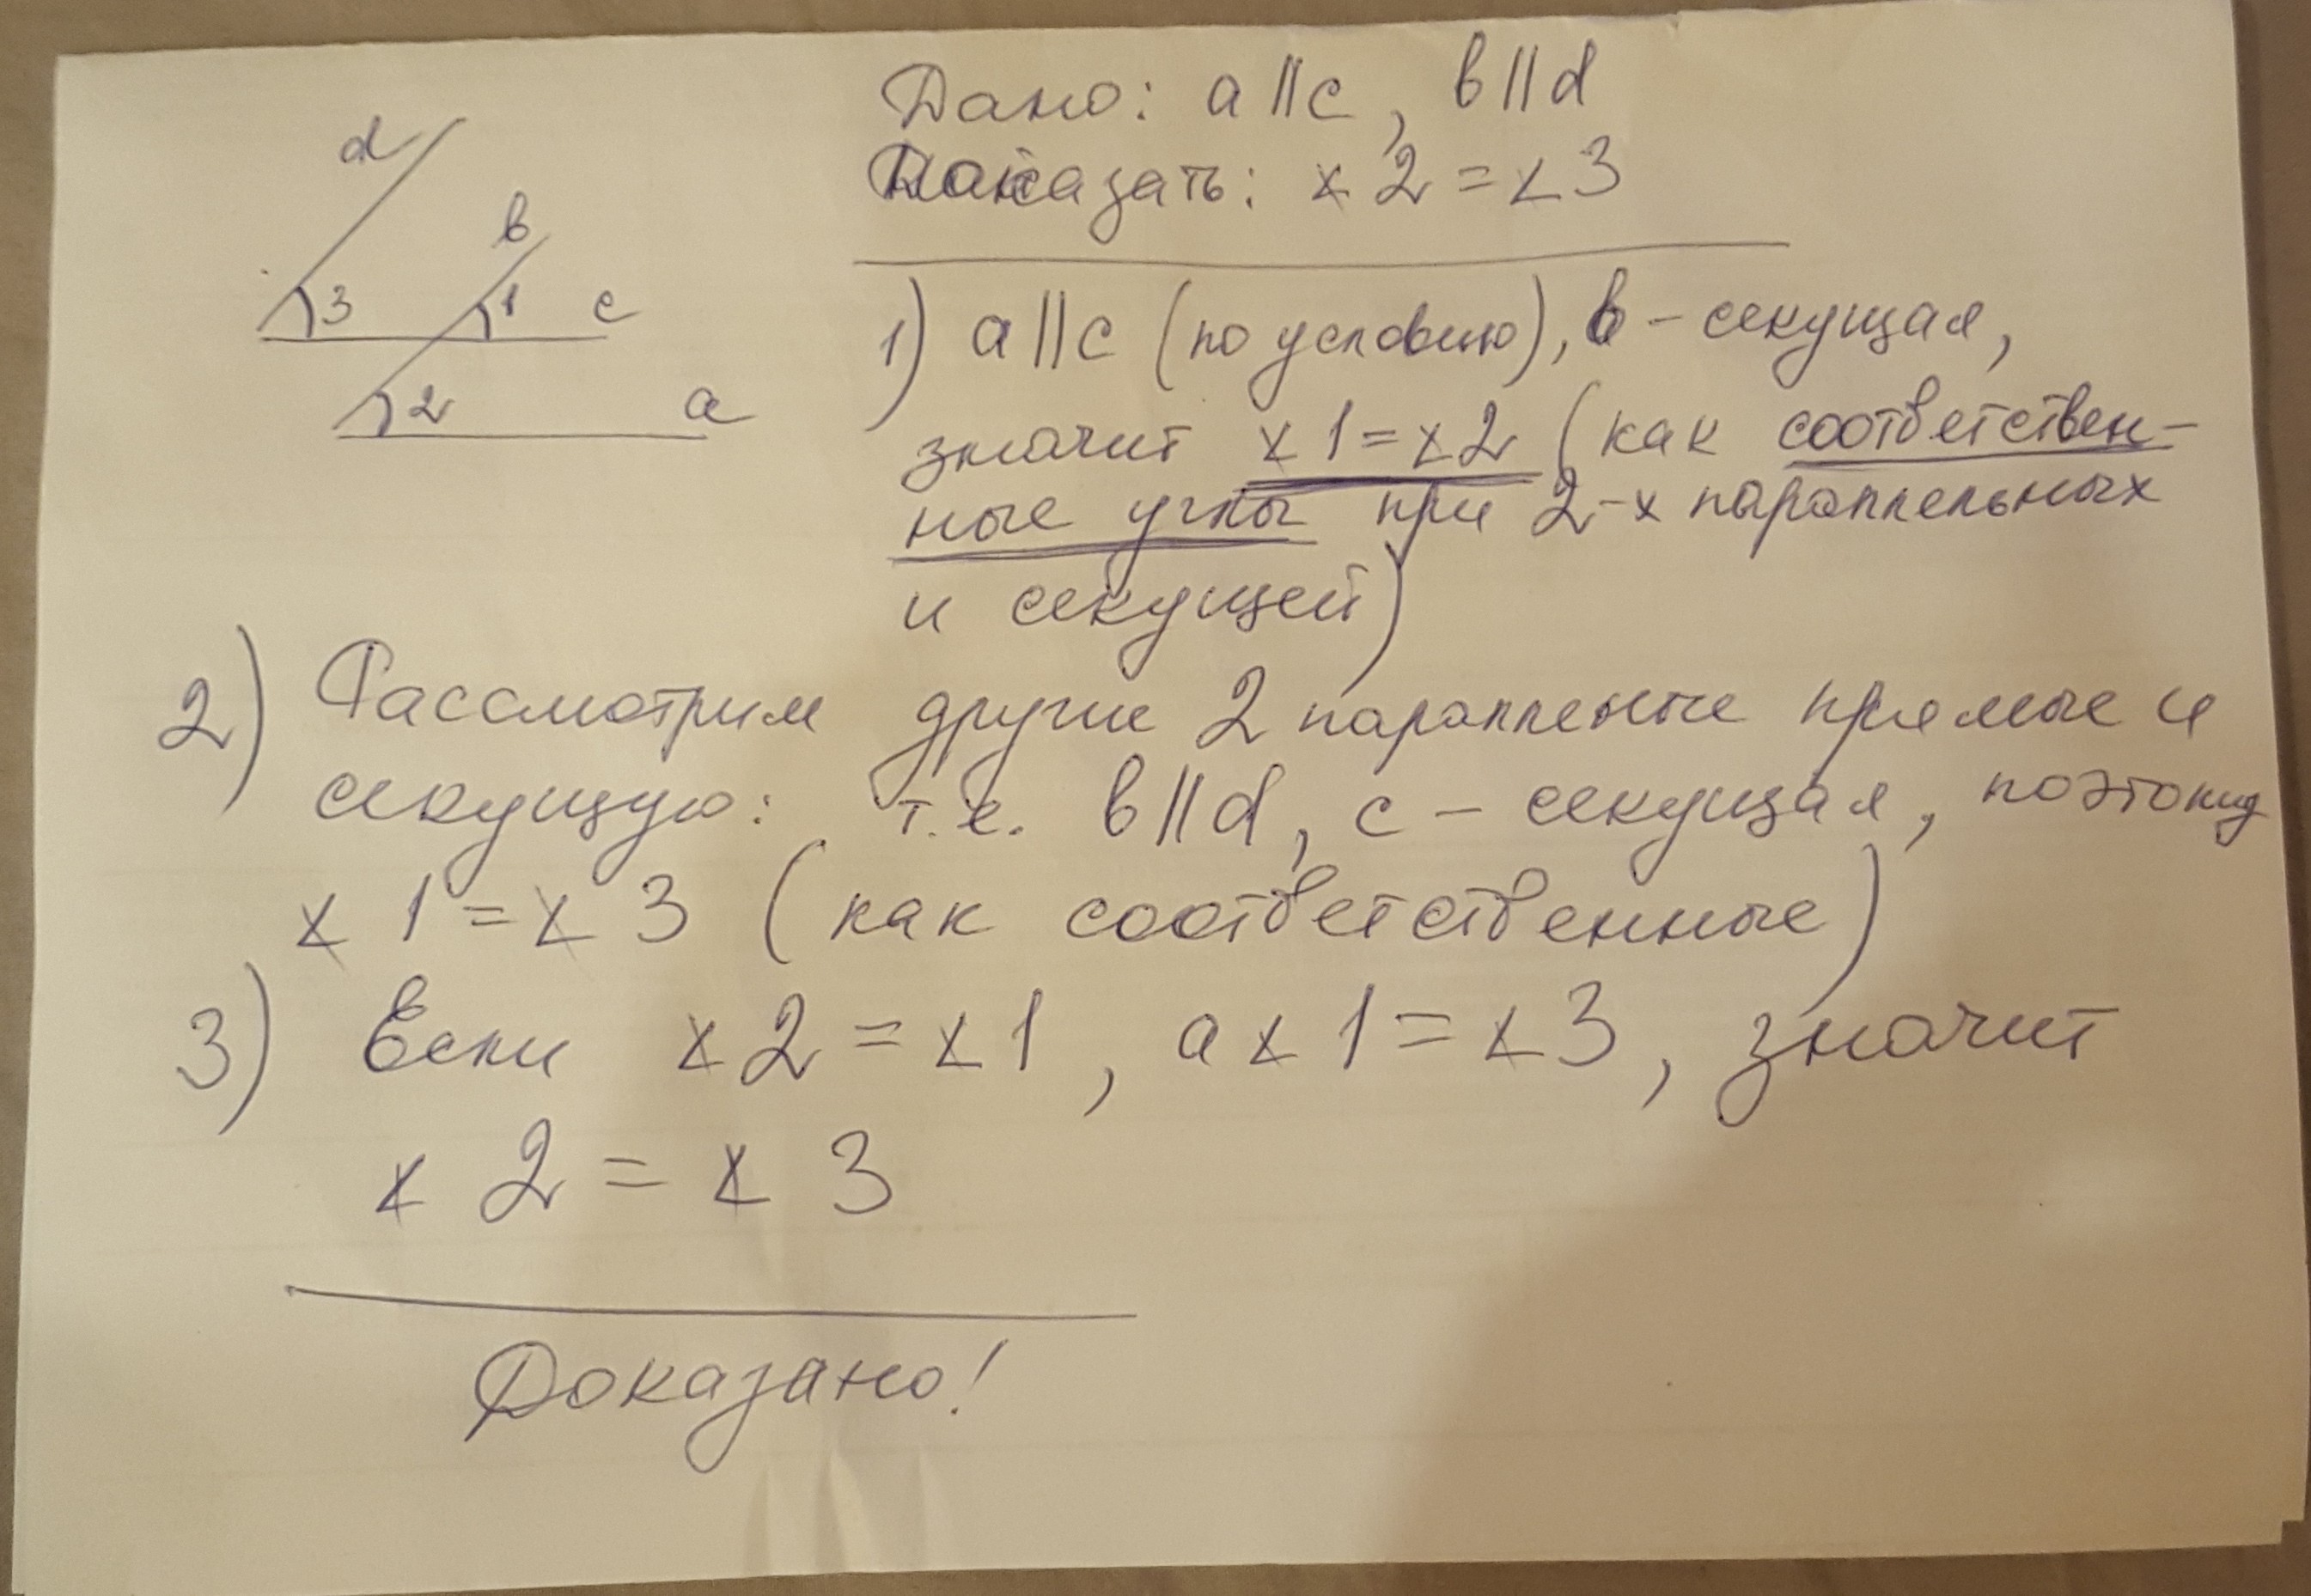 d
b
3
1
c
2
a
Дано: a||c, b||d
Доказать: ∠2 = ∠3
1) a||c (по условию), b – секущая,
значит ∠1 = ∠2 (как соответствен-
ные углы при 2-х параллельных
и секущей)
2) Рассмотрим другие 2 параллельные прямые и
секущую: т.е. b||d, c – секущая, поэтому
∠1 = ∠3 (как соответственные)
3) Если ∠2 = ∠1, а ∠1 = ∠3, значит
∠2 = ∠3
Доказано!